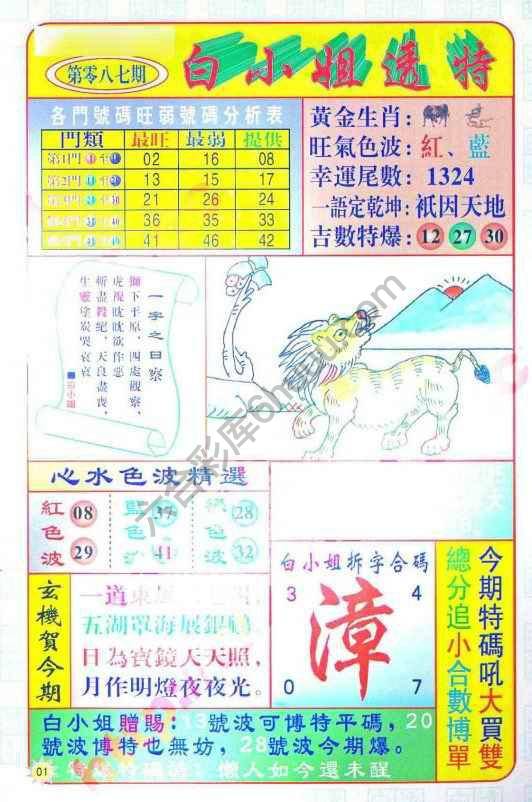 第零八七期
白小姐透特
各門號碼旺弱號碼分析表
門類 最旺 最弱 提供
第1門 02 16 08
第2門 13 15 17
21 26 24
41 46 42
黃金生肖:
旺氣色波: 紅、藍
幸運尾數: 1324
一語定乾坤: 祇因天地
吉數特爆: 12 27 30
一字之日察
獅下平原,四處觀察,
虎視眈眈欲作惡
斬盡殺絕,天良盡喪,
生靈塗炭哭哀哀
心水色波精選
紅色波 08 29
藍色 37 41
色波 28 32
白小姐拆字合碼
3 4
漳
0 7
今期特碼吼大買雙
總分追小合數博單
玄機賀今期
一道東
五湖罩海展銀
日為寶鏡天天照,
月作明燈夜夜光。
白小姐贈賜:13號波可博特平碼,20
號波博特也無妨,28號波今期爆。
懶人如今還未醒
01
六合彩库